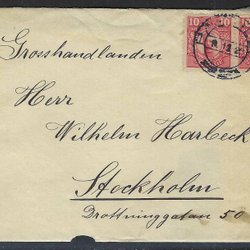 Grosshandlanden
Herr
Wilhelm Harbeck
Stockholm
Drottninggatan 50
10